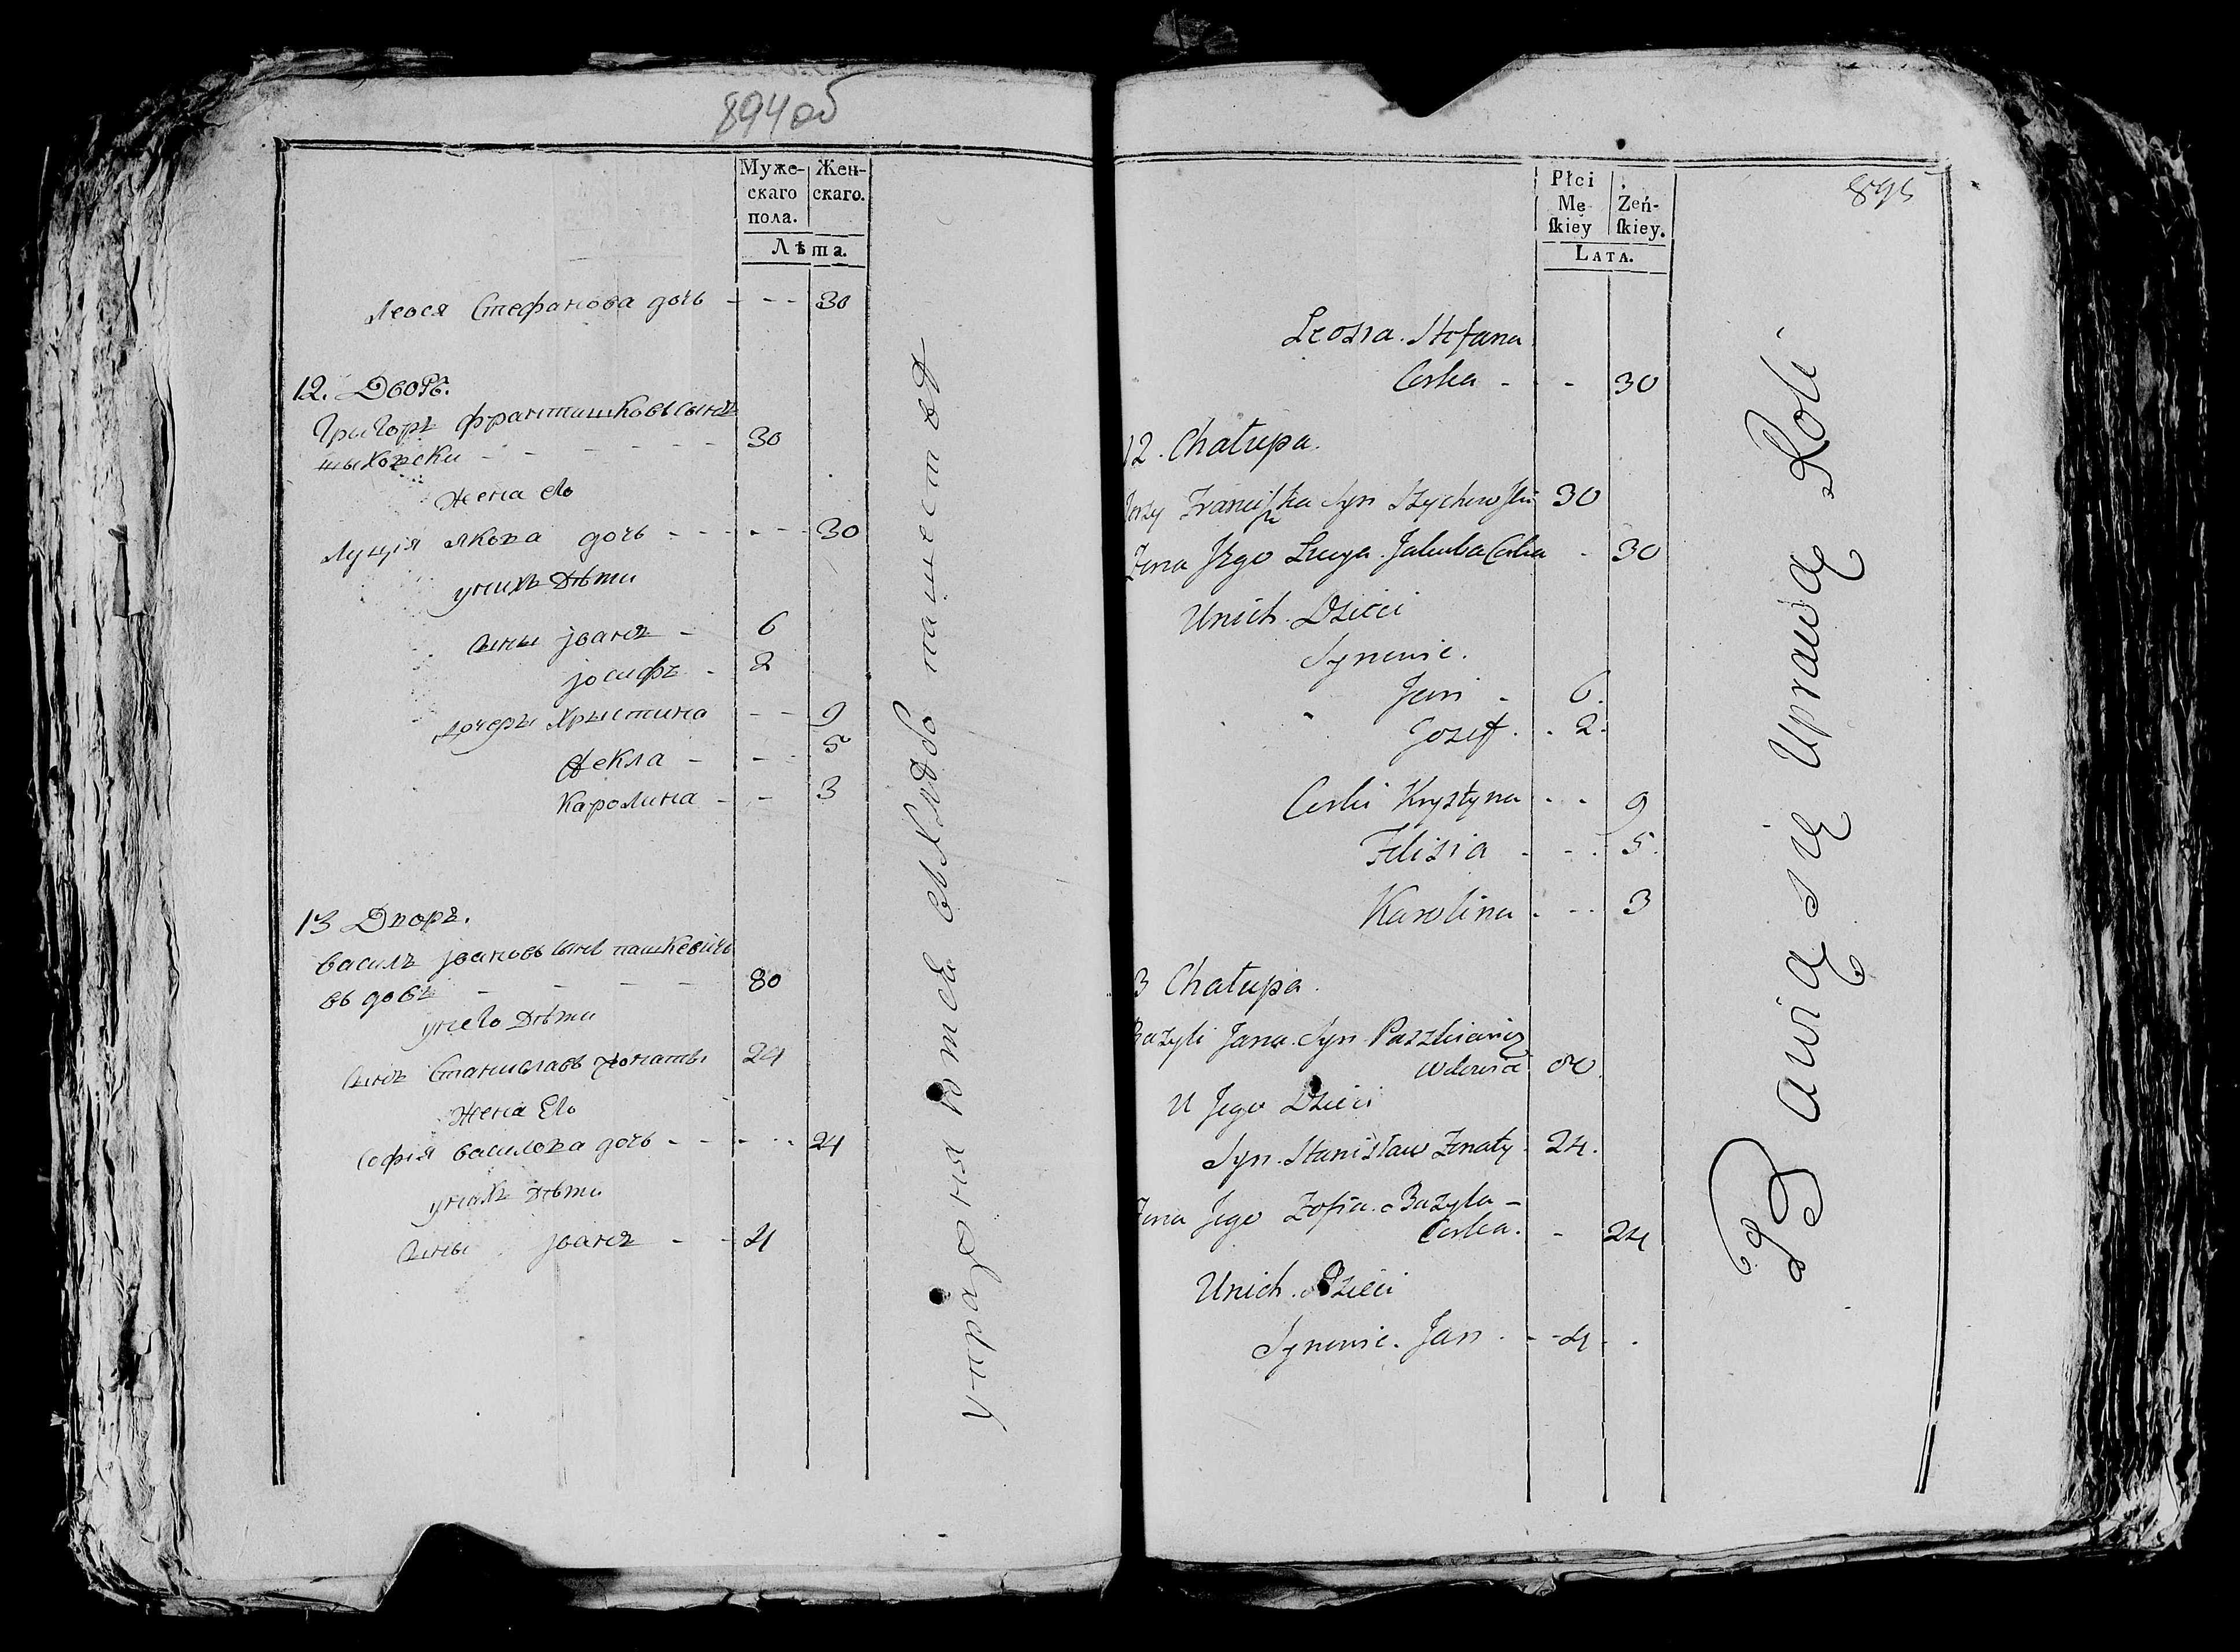 894 об
Муже-
скаго
пола.
Жен-
скаго.
Лѣта.
Леося Стефанова дочь - - - 30
12. Дворъ.
Григоръ Франтишковъ сынъ
шыховски - - - - - 30
жена его
Луція Якова дочь - - - - - 30
у нихъ Дѣти
сыны јванъ - 6
јосифъ - 2
дочеры Хрыстина - - 9
Фекла - - - 5
Каролина - - 3
13 Дворъ.
василъ јвановъ сынъ пашкевичъ
вдовъ - - - - 80
у него Дѣти
сынъ Станиславъ жонаты 24
жена Его
софія василова дочь - - - - - 24
у нихъ Дѣти
сыны јванъ - - 4
упражняются въ хлѣбо пашествѣ
895
Płci
Mę-
skiey
Zeń-
skiey.
LATA.
Leosia. Stefana
Corka - - 30
12. Chałupa.
Jerzy Franciszka Syn Szychowski 30
Zona Jego Lucya. Jakuba Corka - 30
Unich. Dzieci
Synowie.
Jan - 6.
Jozef. . 2.
Corki Krystyna . . 9
Felisia - - . 5.
Karolina . - . 3
3 Chałupa.
Bazyli Jana. Syn. Paszkiewicz
wdowiec 80.
U Jego Dzieci
Syn. Stanisław Zonaty. 24.
Zona Jego Zofia. Bazyla -
Corka. - 24
Unich. Dzieci
Synowie. Jan. - - 4 - .
Bawią się Uprawą Roli